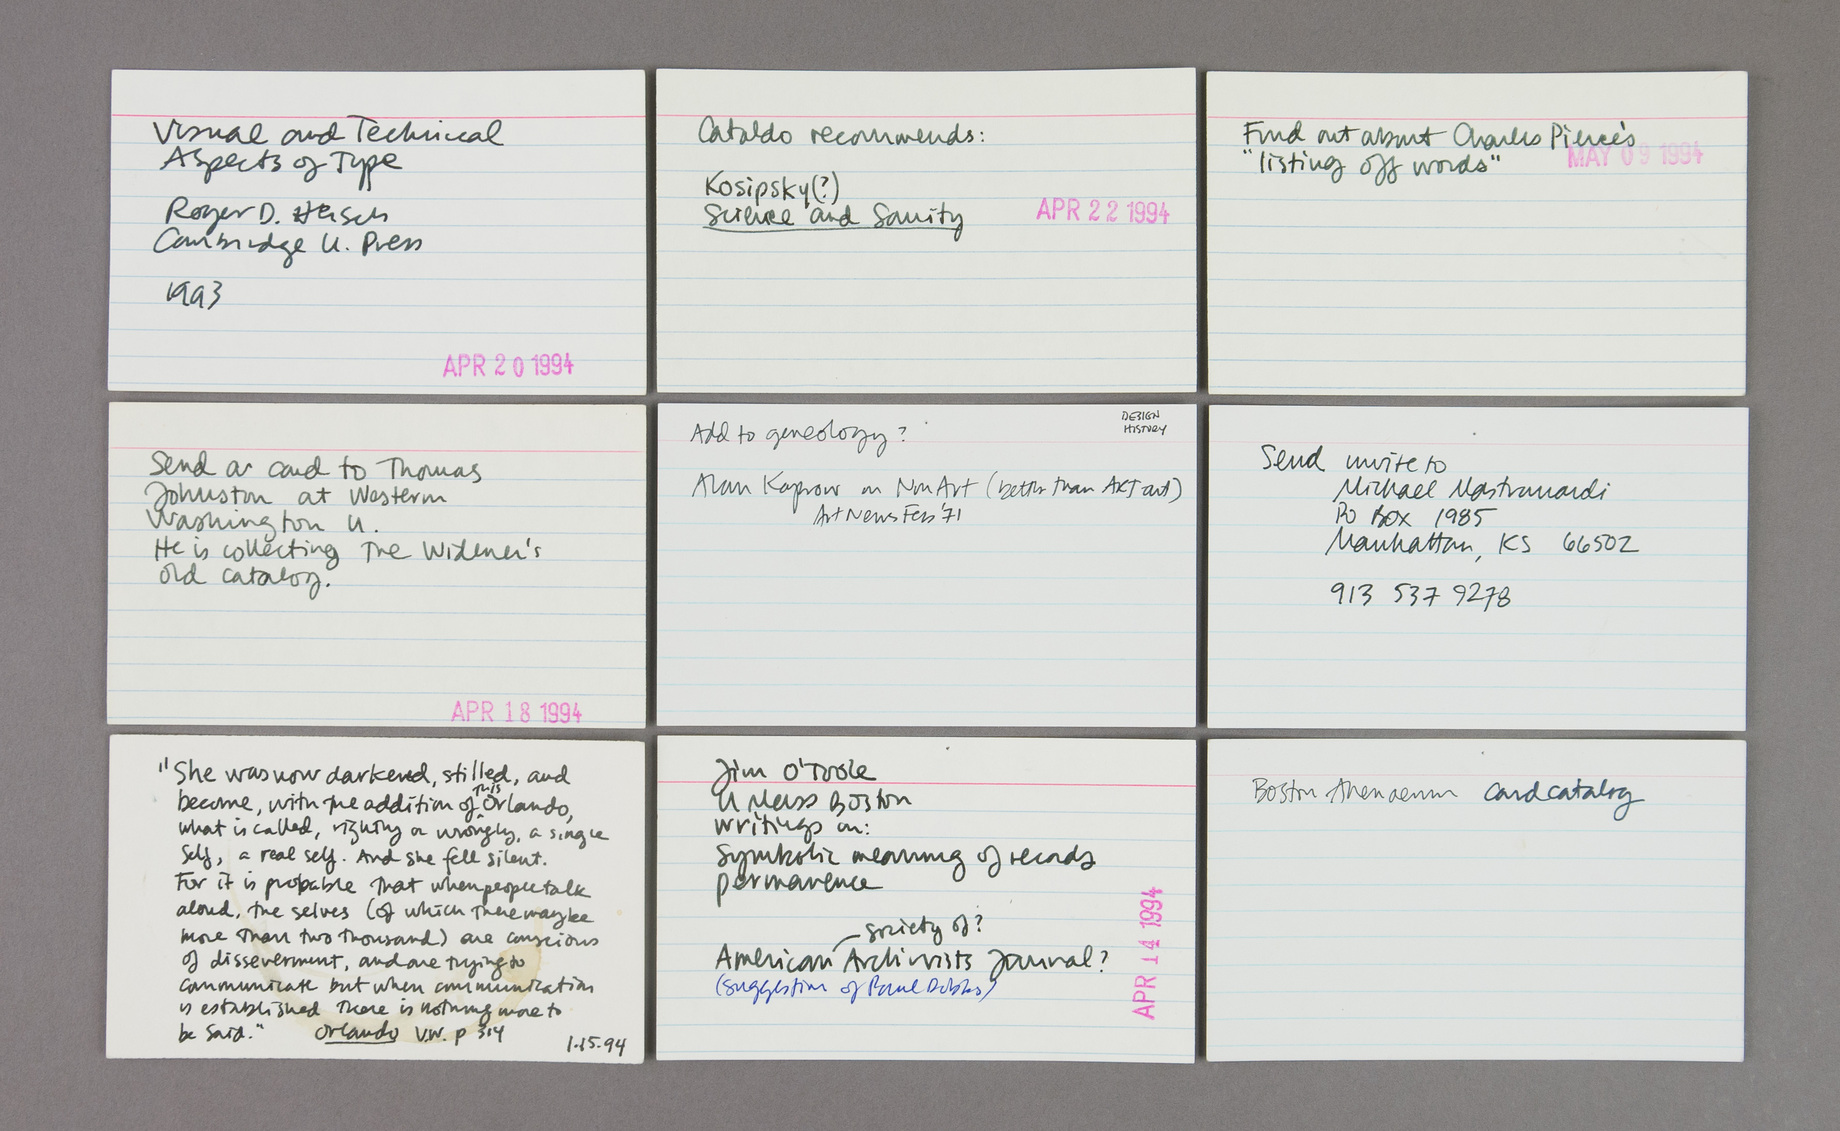 Visual and Technical
Aspects of Type
Roger D. Hersch
Cambridge U. Press
1993
APR 20 1994
Cataldo recommends:
Kosipsky(?)
Science and Sanity
APR 22 1994
Find out about Charles Pierce's
"listing off words"
MAY 09 1994
Send a card to Thomas
Johnston at Western
Washington U.
He is collecting The Widener's
old catalog.
APR 18 1994
DESIGN
HISTORY
Add to geneology?
Alan Kaprow on Non Art (better than ART art)
Art News Feb '71
Send invite to
Michael Mastronardi
PO Box 1985
Manhattan, KS 66502
913 537 9278
"She was now darkened, stilled, and
become, with the addition of this Orlando,
what is called, rightly or wrongly, a single
self, a real self. And she fell silent.
For it is probable that when people talk
aloud, the selves (of which there may be
more than two thousand) are conscious
of disseverment, and are trying to
communicate but when communication
is established there is nothing more to
be said."
Orlando V.W. p 314
1.15.94
Jim O'Toole
U Mass Boston
writings on:
Symbolic meaning of records
permanence
society of?
American Archivists Journal?
(suggestion of Paul Dobbs)
APR 14 1994
Boston Athenaeum card catalog